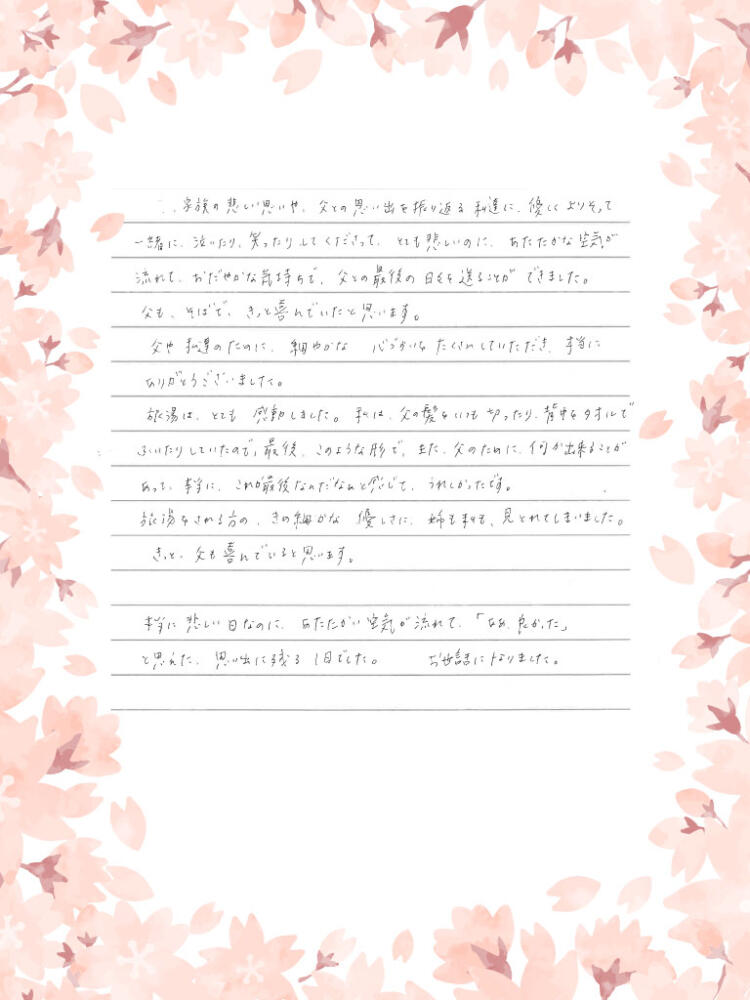 、家族の悲しい思いや、父との思い出を振り返る私達に、優しくよりそって
一緒に、泣いたり、笑ったりしてくださって、とても悲しいのに、あたたかな空気が
流れて、おだやかな気持ちで、父との最後の日々を送ることができました。
父も、そばで、きっと喜んでいたと思います。
父や私達のために、細やかな 心づかいをたくさんしていただき、本当に
ありがとうございました。
旅湯は、とても 感動しました。私は、父の髪をいつも切ったり、背中をタオルで
ふいたりしていたので、最後、このような形で、また、父のために、何か出来ることが
あって、本当に、これが最後なんだなぁと感じて、うれしかったです。
旅湯をされる方の、きめ細かな 優しさに、姉も私も、見とれてしまいました。
きっと、父も喜んでいると思います。
本当に悲しい日なのに、あたたかい空気が流れて、「ああ、良かった」
と思えた、思い出に残る1日でした。 お世話になりました。